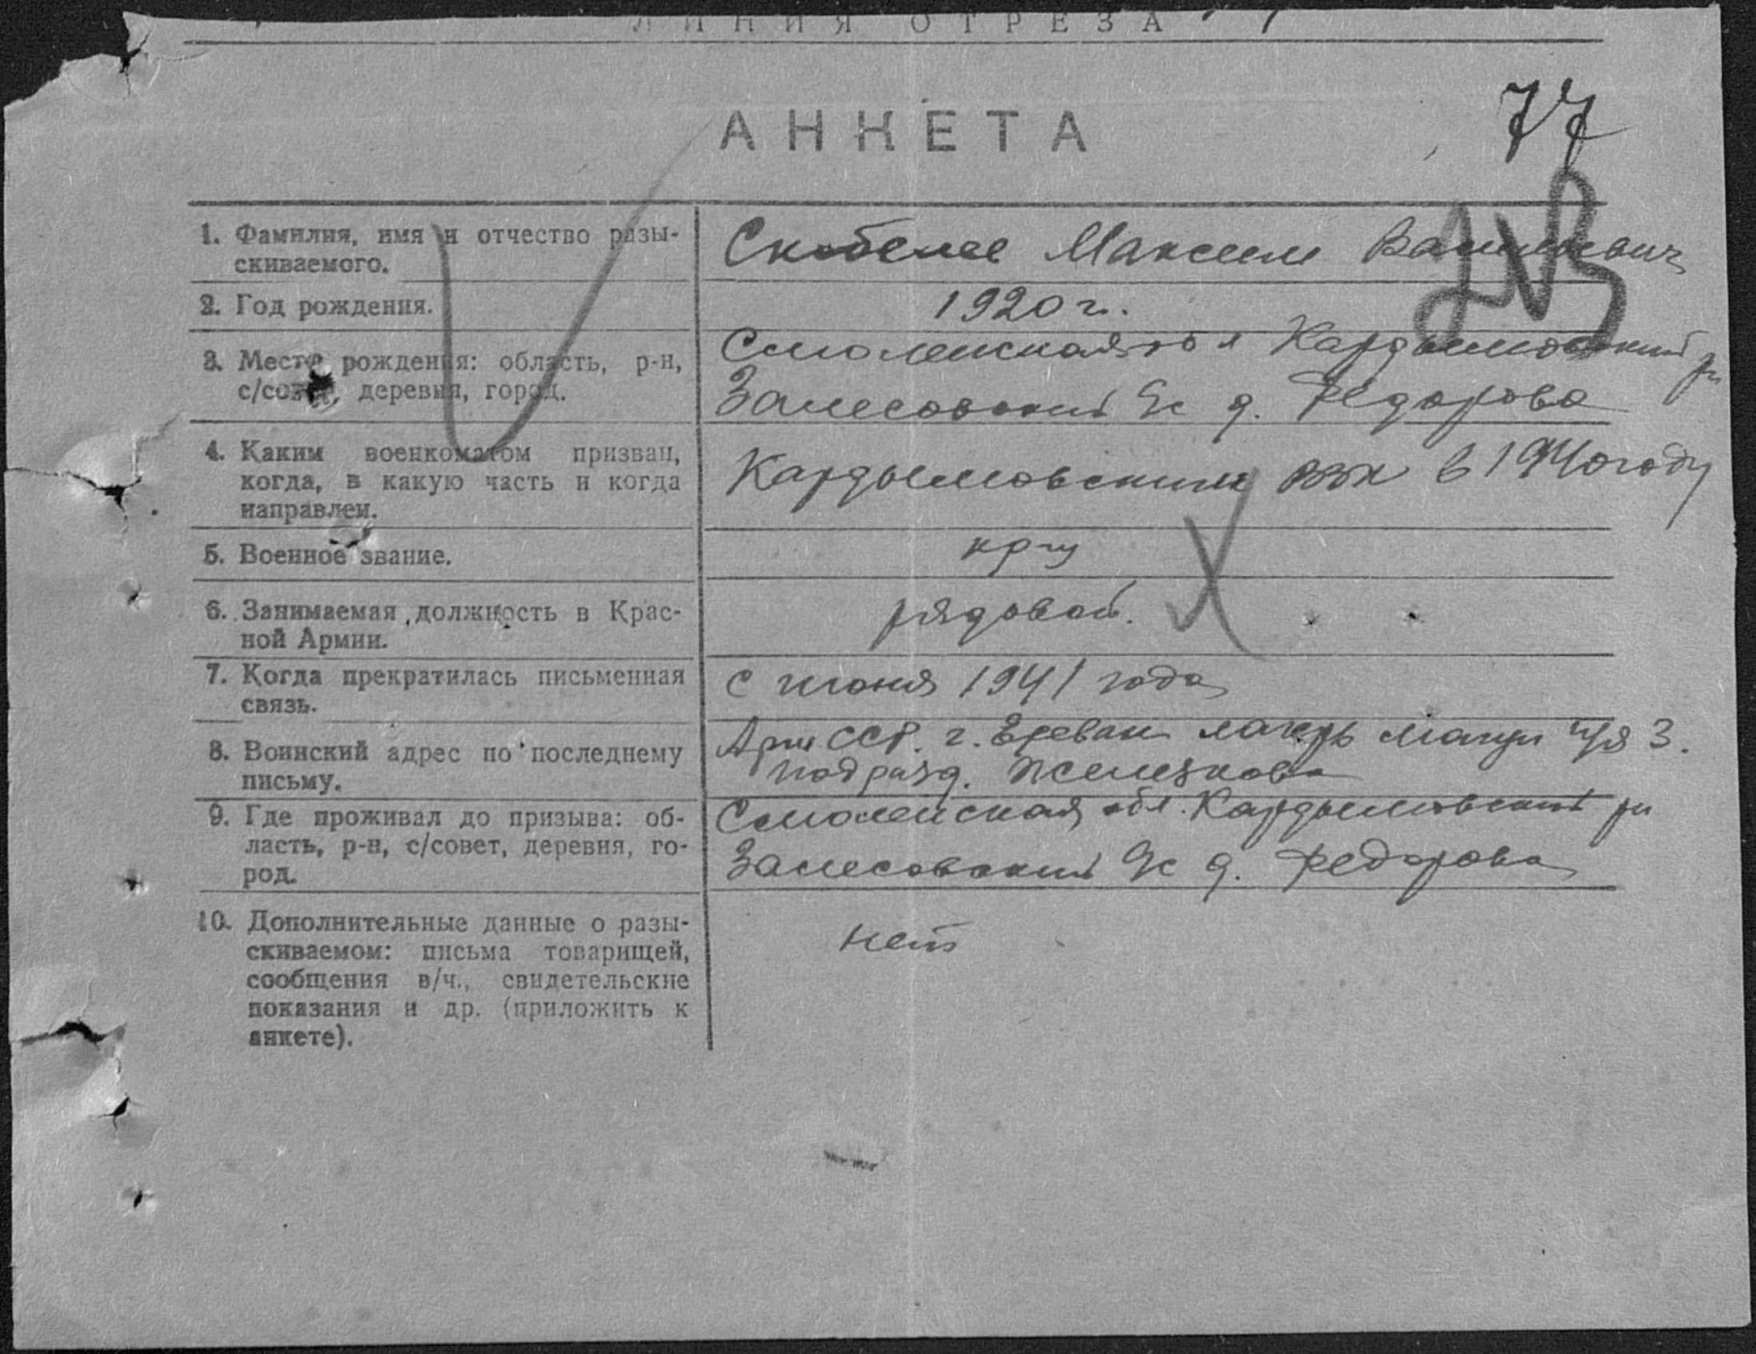 ЛИНИЯ ОТРЕЗА
77
АНКЕТА
1. Фамилия, имя и отчество разы-
скиваемого.
Скобелев Максим Васильевич
2. Год рождения.
1920 г.
3. Место рождения: область, р-н,
с/совет, деревня, город.
Смоленская обл Кардымовский рн
Залесовский с/с д. Федорова
4. Каким военкоматом призван,
когда, в какую часть и когда
направлен.
Кардымовским рвк в 1940 году
5. Военное звание.
кр-ц
6. Занимаемая должность в Крас-
ной Армии.
рядовой.
7. Когда прекратилась письменная
связь.
с июня 1941 года
8. Воинский адрес по последнему
письму.
Арм ССР. г. Ереван лагерь 3.
подразд. Железкова
9. Где проживал до призыва: об-
ласть, р-н, с/совет, деревня, го-
род.
Смоленская обл. Кардымовский рн
Залесовский с/с д. Федорова
10. Дополнительные данные о разы-
скиваемом: письма товарищей,
сообщения в/ч., свидетельские
показания и др. (приложить к
анкете).
нет